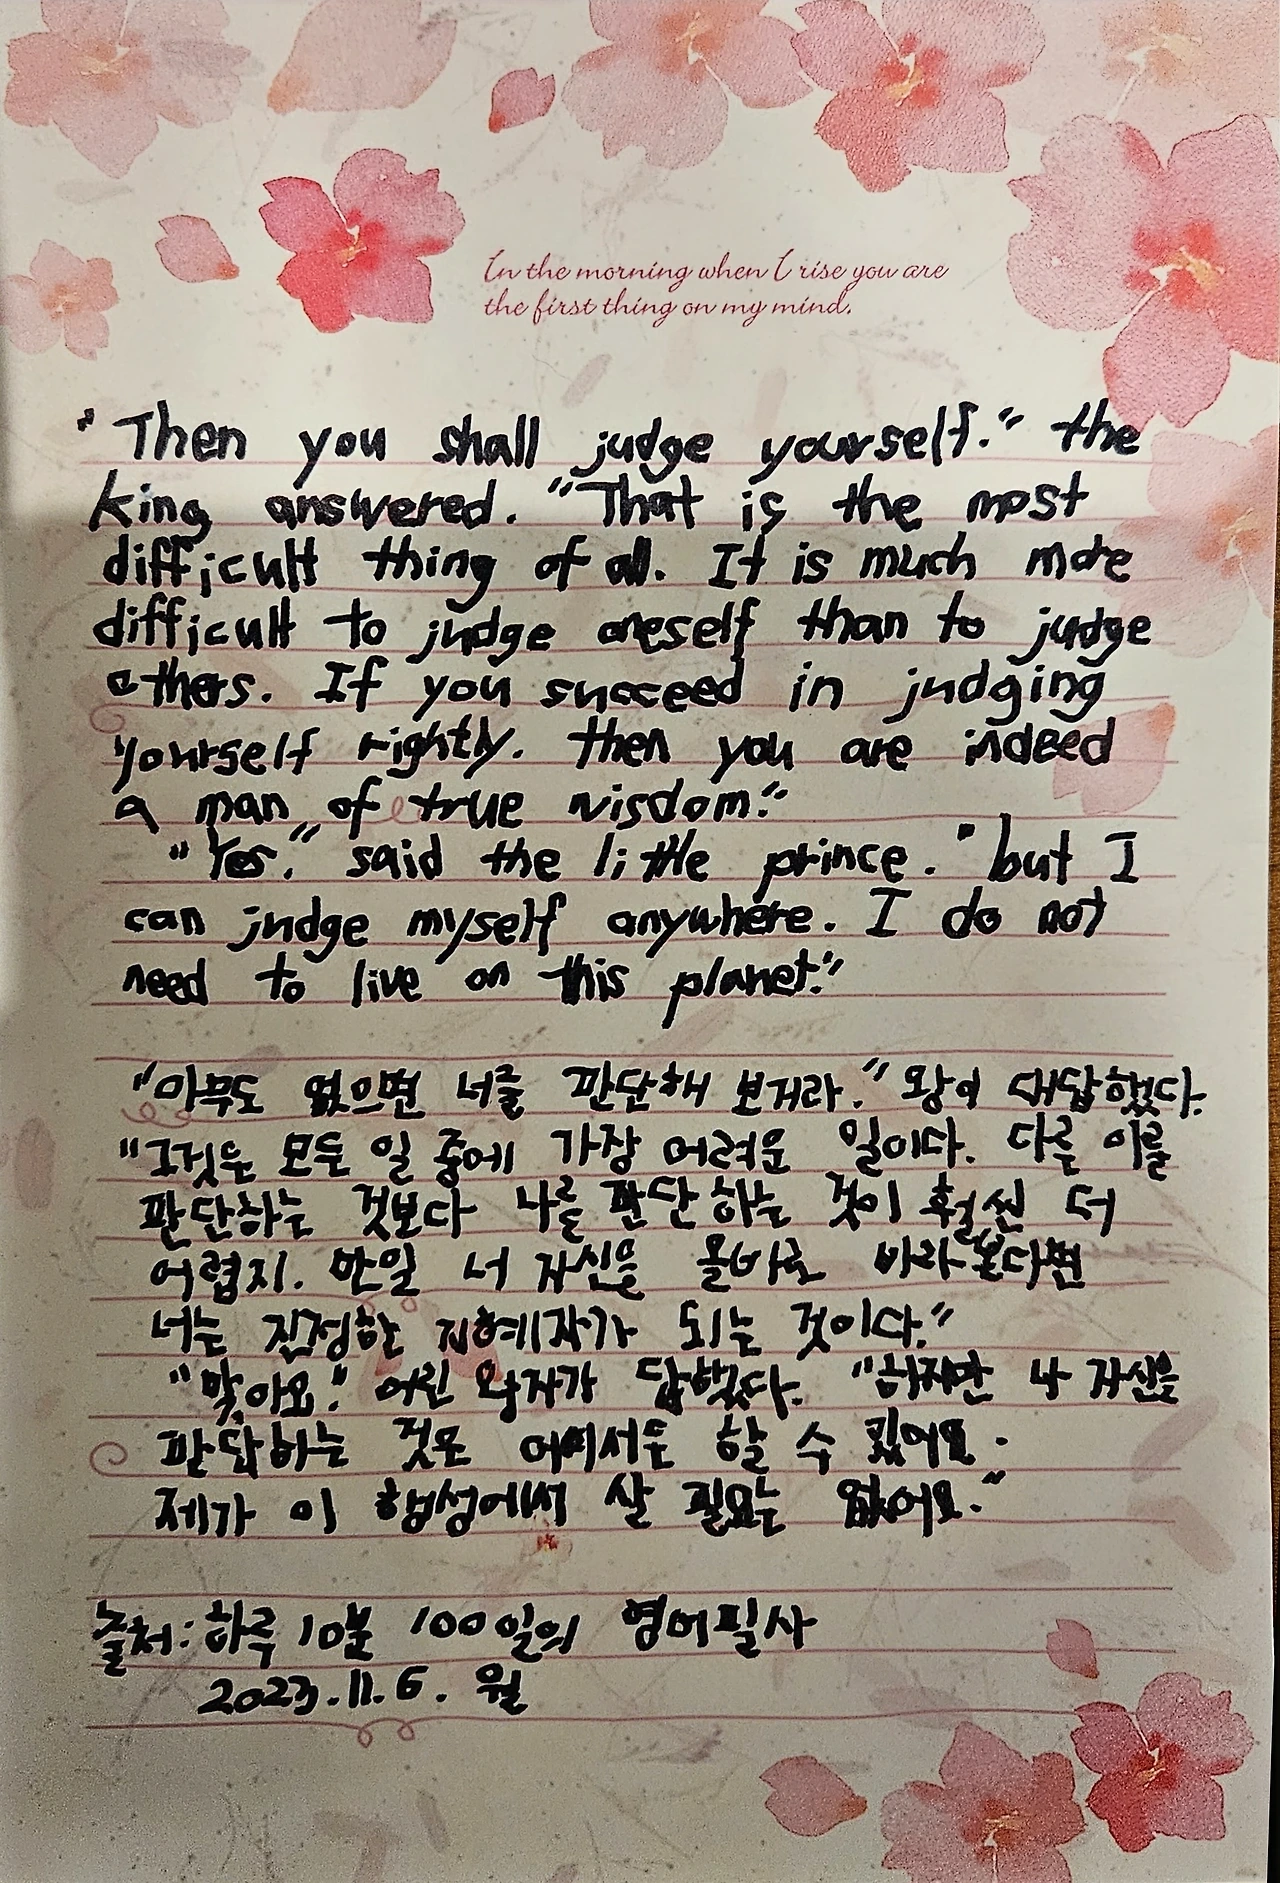 In the morning when I rise you are
the first thing on my mind.
"Then you shall judge yourself." the
king answered. "That is the most
difficult thing of all. It is much more
difficult to judge oneself than to judge
others. If you succeed in judging
yourself rightly. then you are indeed
a man of true wisdom."
"Yes." said the little prince. "but I
can judge myself anywhere. I do not
need to live on this planet."
"아무도 없으면 너를 판단해 보거라." 왕이 대답했다.
"그것은 모든 일 중에 가장 어려운 일이다. 다른 이를
판단하는 것보다 나를 판단하는 것이 훨씬 더
어렵지. 만일 너 자신을 올바로 바라본다면
너는 진정한 지혜자가 되는 것이다."
"맞아요." 어린 왕자가 답했다. "하지만 나 자신을
판단하는 것은 어디서든 할 수 있어요.
제가 이 행성에서 살 필요는 없어요."
출처: 하루 10분 100일의 영어필사
2023.11.6. 월